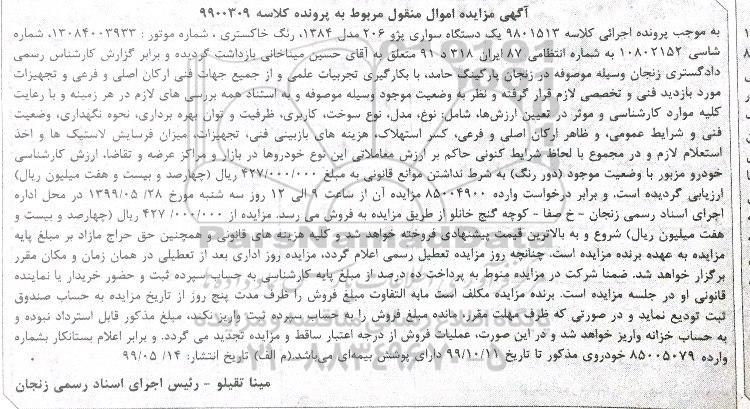 آگهی مزایده اموال منقول مربوط به پرونده کلاسه ۹۹۰۰۳۰۹
به موجب پرونده اجرائی کلاسه ۹۸۰۱۵۱۳ یک دستگاه سواری پژو ۲۰۶ مدل ۱۳۸۴، رنگ خاکستری ، شماره موتور : ۱۳۰۸۴۰۰۳۹۳۳، شماره
شاسی ۱۰۸۰۲۱۵۲ به شماره انتظامی ۸۷ ایران ۳۱۸ د ۹۱ متعلق به آقای حسین میناخانی بازداشت گردیده و برابر گزارش کارشناس رسمی
دادگستری زنجان وسیله موصوفه در زنجان پارکینگ حامد، با بکارگیری تجربیات علمی و از جمیع جهات فنی ارکان اصلی و فرعی و تجهیزات
مورد بازدید فنی و تخصصی لازم قرار گرفته و نظر به وضعیت موجود وسیله موصوفه و به استناد همه بررسی های لازم در هر زمینه و با رعایت
کلیه موارد کارشناسی و موثر در تعیین ارزش‌ها، شامل: نوع، مدل، نوع سوخت، کاربری، ظرفیت و توان بهره برداری، نحوه نگهداری، وضعیت
فنی و شرایط عمومی، و ظاهر ارکان اصلی و فرعی، کسر استهلاک، هزینه های بازبینی فنی، تجهیزات، میزان فرسایش لاستیک ها و اخذ
استعلام لازم و در مجموع با لحاظ شرایط کنونی حاکم بر ارزش معاملاتی این نوع خودروها در بازار و مراکز عرضه و تقاضا، ارزش کارشناسی
خودرو مزبور با وضعیت موجود (دور رنگ) به شرط نداشتن موانع قانونی به مبلغ ۴۲۷/۰۰۰/۰۰۰ ریال (چهارصد و بیست و هفت میلیون ریال)
ارزیابی گردیده است. و برابر درخواست وارده ۸۵۰۰۴۹۰۰ مزایده آن از ساعت ۹ الی ۱۲ روز سه شنبه مورخ ۲۸/ ۱۳۹۹/۰۵ در محل اداره
اجرای اسناد رسمی زنجان - خ صفا - کوچه گنج خانلو از طریق مزایده به فروش می رسد. مزایده از ۰۰۰/۰۰۰/ ۴۲۷ ریال (چهارصد و بیست و
هفت میلیون ریال) شروع و به بالاترین قیمت پیشنهادی فروخته خواهد شد و کلیه هزینه های قانونی و همچنین حق حراج مازاد بر مبلغ پایه
مزایده به عهده برنده مزایده است. چنانچه روز مزایده تعطیل رسمی اعلام گردد، مزایده روز اداری بعد از تعطیلی در همان زمان و مکان مقرر
برگزار خواهد شد. ضمنا شرکت در مزایده منوط به پرداخت ده درصد از مبلغ پایه کارشناسی به حساب سپرده ثبت و حضور خریدار یا نماینده
قانونی او در جلسه مزایده است. برنده مزایده مکلف است مابه التفاوت مبلغ فروش را ظرف مدت پنج روز از تاریخ مزایده به حساب صندوق
ثبت تودیع نماید و در صورتی که ظرف مهلت مقرر، مانده مبلغ فروش را به حساب سپرده ثبت واریز نکند، مبلغ مذکور قابل استرداد نبوده و
به حساب خزانه واریز خواهد شد و در این صورت، عملیات فروش از درجه اعتبار ساقط و مزایده تجدید می گردد. و برابر اعلام بستانکار بشماره
وارده ۸۵۰۰۵۰۷۹ خودروی مذکور تا تاریخ ۹۹/۱۰/۱۱ دارای پوشش بیمه‌ای می‌باشد.(م الف) تاریخ انتشار: ۱۴/ ۹۹/۰۵
مینا تقیلو - رئیس اجرای اسناد رسمی زنجان